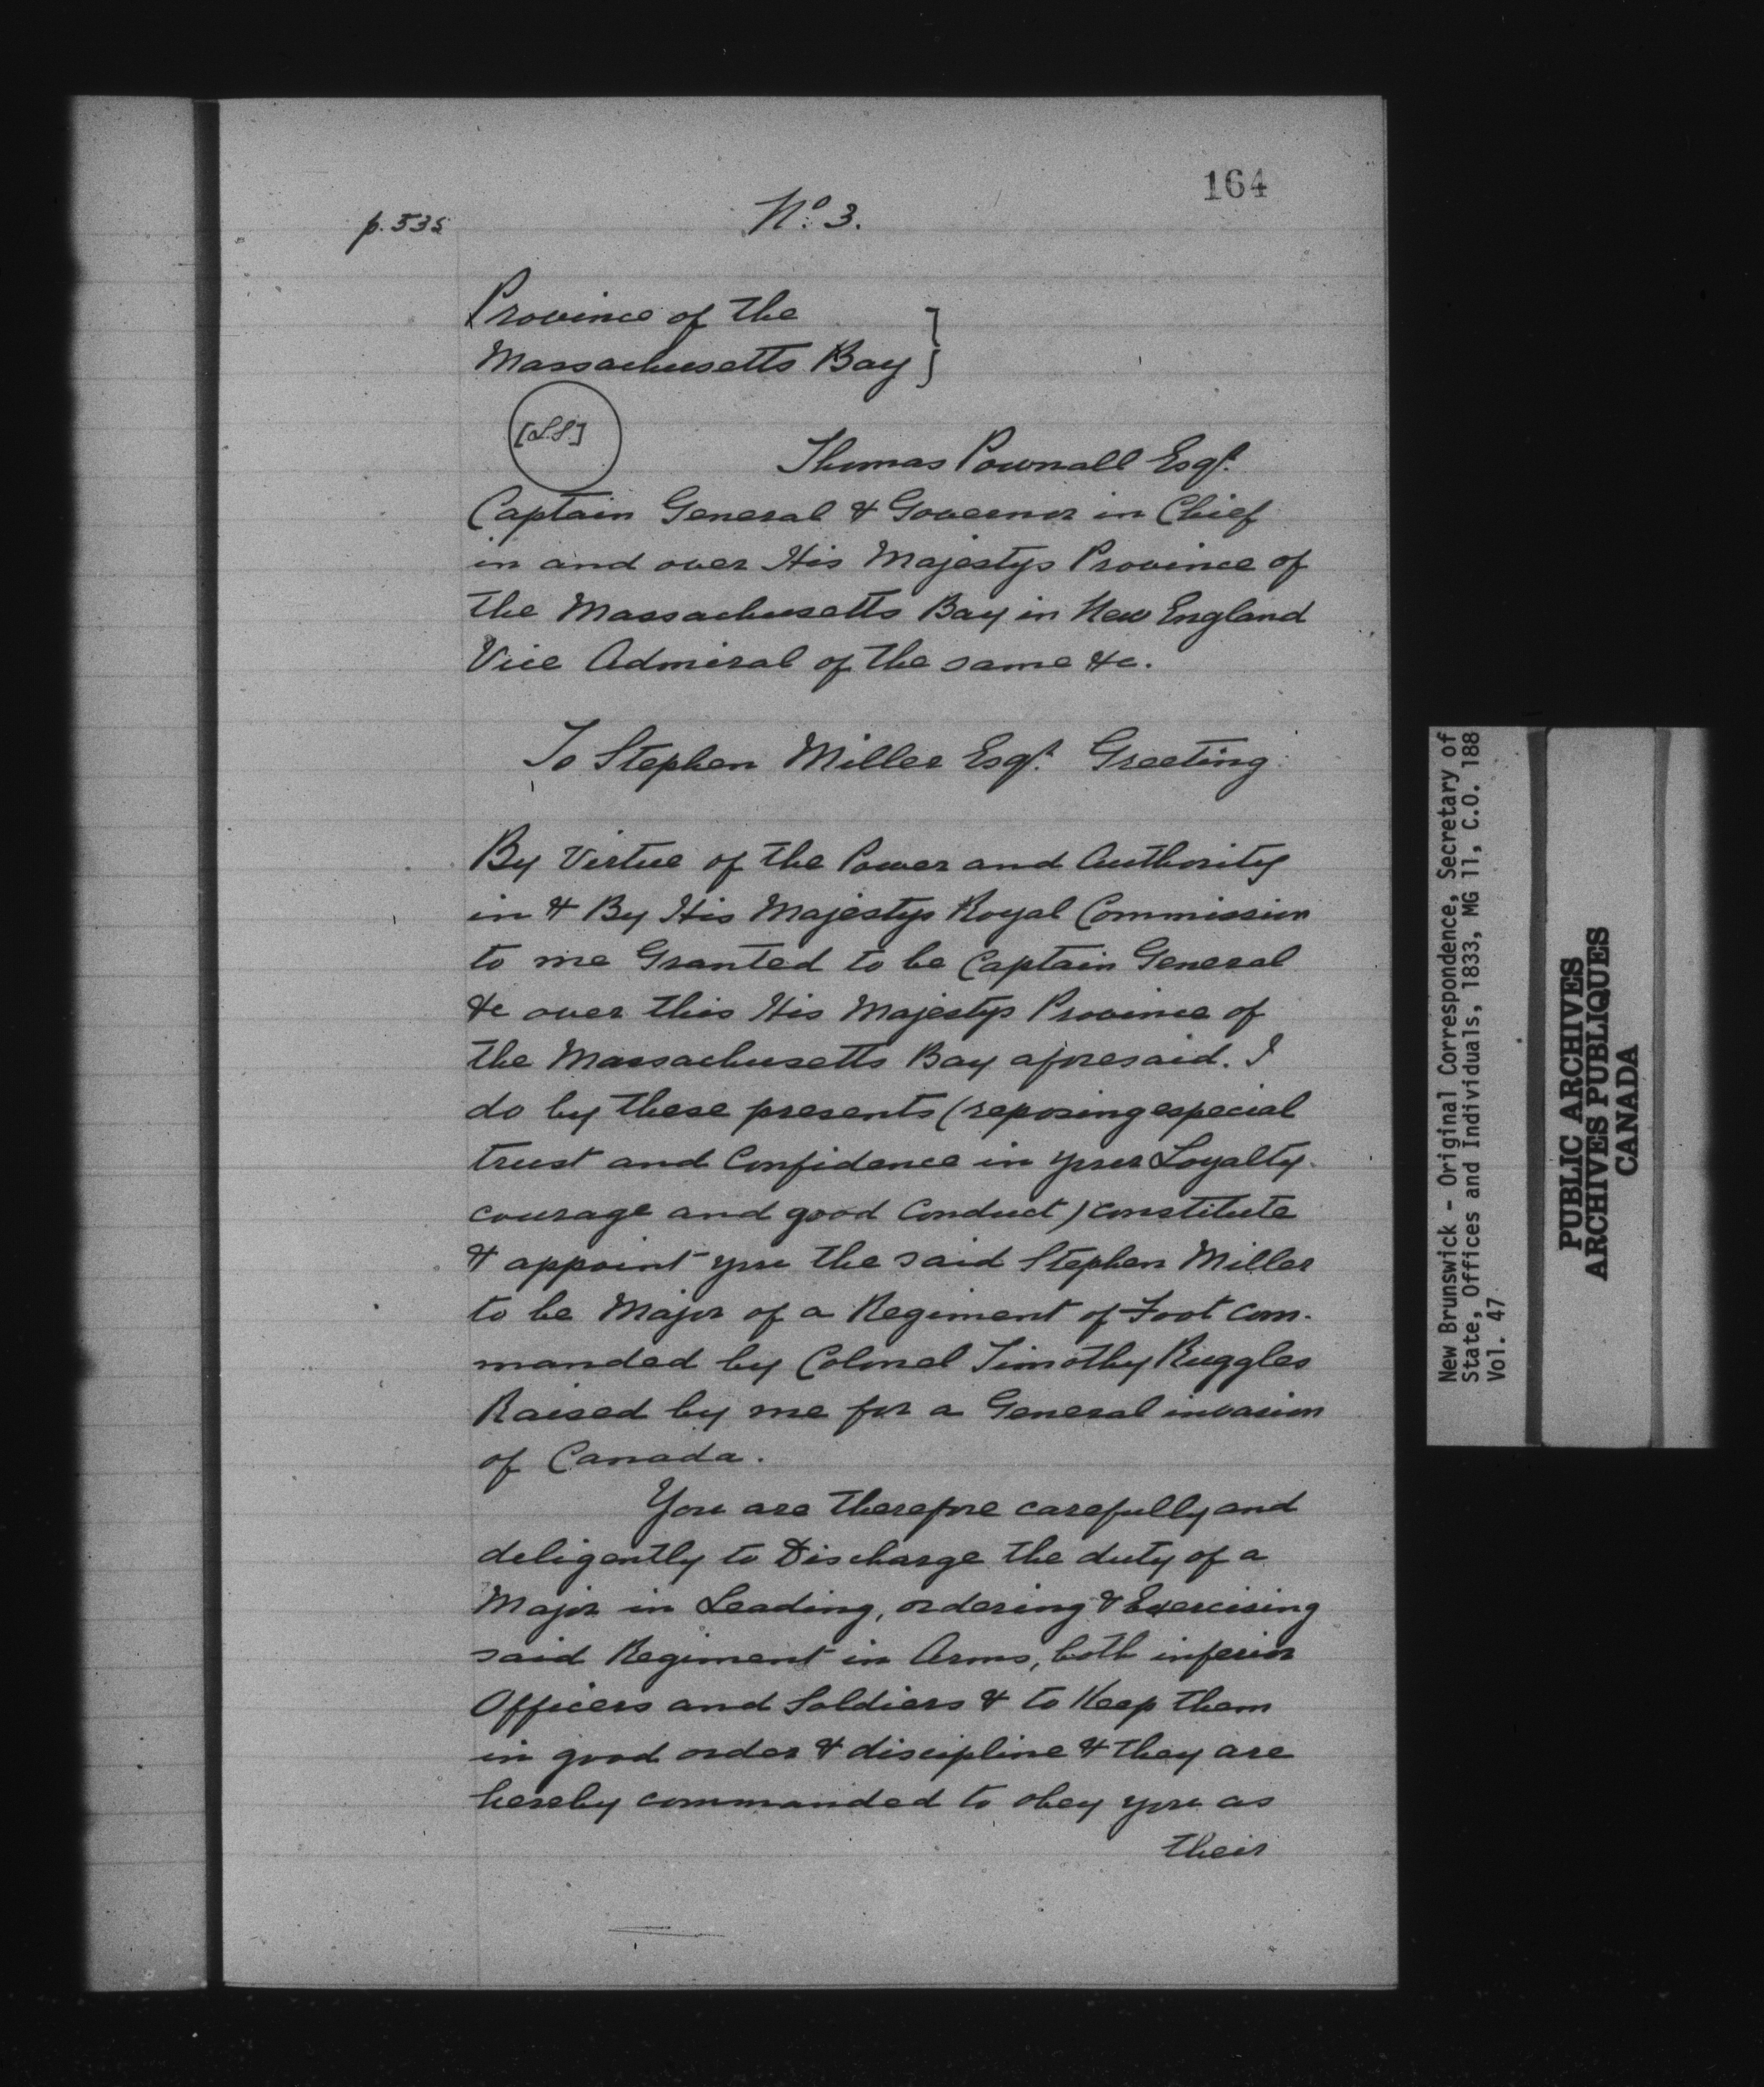 164
p. 535
No. 3.
Province of the
Massachusetts Bay }
[L.S]
Thomas Pownall Esqr.
Captain General & Governor in Chief
in and over His Majestys Province of
the Massachusetts Bay in New England
Vice Admiral of the same &c.
To Stephen Miller Esqr. Greeting
By Virtue of the Power and Authority
in & By His Majestys Royal Commission
to me Granted to be Captain General
&c over this His Majestys Province of
the Massachusetts Bay aforesaid. I
do by these presents (reposing especial
trust and Confidence in your Loyalty
courage and good Conduct) constitute
& appoint you the said Stephen Miller
to be Major of a Regiment of Foot com-
manded by Colonel Timothy Ruggles
Raised by me for a General invasion
of Canada.
You are therefore carefully and
deligently to Discharge the duty of a
Major in Leading, ordering & Exercising
said Regiment in Arms, both inferior
Officers and Soldiers & to Keep them
in good order & discipline & they are
hereby commanded to obey you as
their
New Brunswick - Original Correspondence, Secretary of
State, Offices and Individuals, 1833, MG 11, C.O. 188
Vol. 47
PUBLIC ARCHIVES
ARCHIVES PUBLIQUES
CANADA